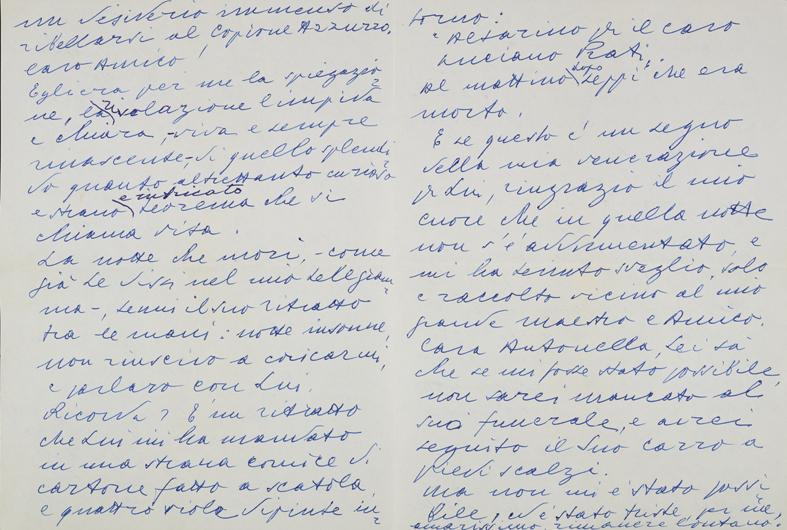 un desiderio immenso di
ribellarsi al Copione Azzurro.
Caro Amico!
Egli era per me la spiegazio
ne, la rivelazione limpida
e chiara, - viva e sempre
rinascente - di quello splendi
do quanto altrettanto curioso
e strano e intricato teorema che si
chiama vita.
La notte che morì, - come
già Le dissi nel mio telegram
ma -, tenni il suo ritratto
tra le mani: notte insonne,
non riuscivo a coricarmi,
e parlavo con Lui.
Ricorda? È un ritratto
che Lui mi ha mandato
in una strana cornice di
cartone fatto a scatola
e quattro viole dipinte in
torno:
"Altarino per il caro
Luciano Prati".
Al mattino dopo seppi che era
morto.
E se questo è un segno
della mia venerazione
per Lui, ringrazio il mio
cuore che in quella notte
non s'è addormentato, e
mi ha tenuto sveglio, solo
e raccolto vicino al mio
grande maestro e Amico.
Cara Antonella, Lei sa
che se mi fosse stato possibile
non sarei mancato al
suo funerale, e avrei
seguito il suo carro a
piedi scalzi.
Ma non mi è stato possi
bile, ed è stato triste, per me,
amarissimo, rimanere lontano.